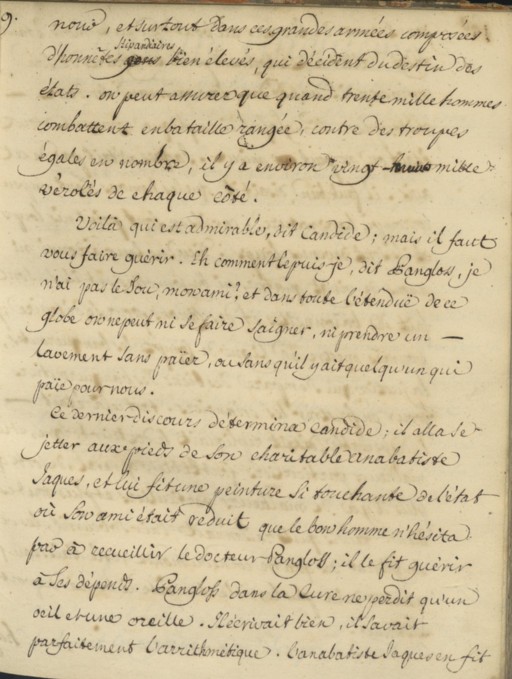 9.
nous, et surtout dans ces grandes armées composées
stipandiaires
d'honnêtes gens bien élevés, qui décident du destin des
états. on peut assurer que quand trente mille hommes
combattent en bataille rangée, contre des troupes
égales en nombre, il y a environ vingt mille
vérolés de chaque côté.
Voilà qui est admirable, dit Candide; mais il faut
vous faire guérir. Eh comment le puis-je, dit Pangloss, je
n'ai pas le Sou, mon ami? et dans toute l'étendue de ce
globe on ne peut ni se faire saigner, ni prendre un —
lavement sans païer, ou sans qu'il y ait quelqu'un qui
païe pour nous.
Ce dernier discours détermina Candide; il alla se
jetter aux pieds de son charitable anabatiste
Jaques, et lui fit une peinture si touchante de l'état
où son ami était réduit que le bon homme n'hésita
pas à recueillir le docteur Pangloss; il le fit guérir
à ses dépends. Pangloss dans la cure ne perdit qu'un
oeil et une oreille. Il écrivait bien, il savait
parfaitement l'arrithmétique. l'anabatiste Jaques en fit